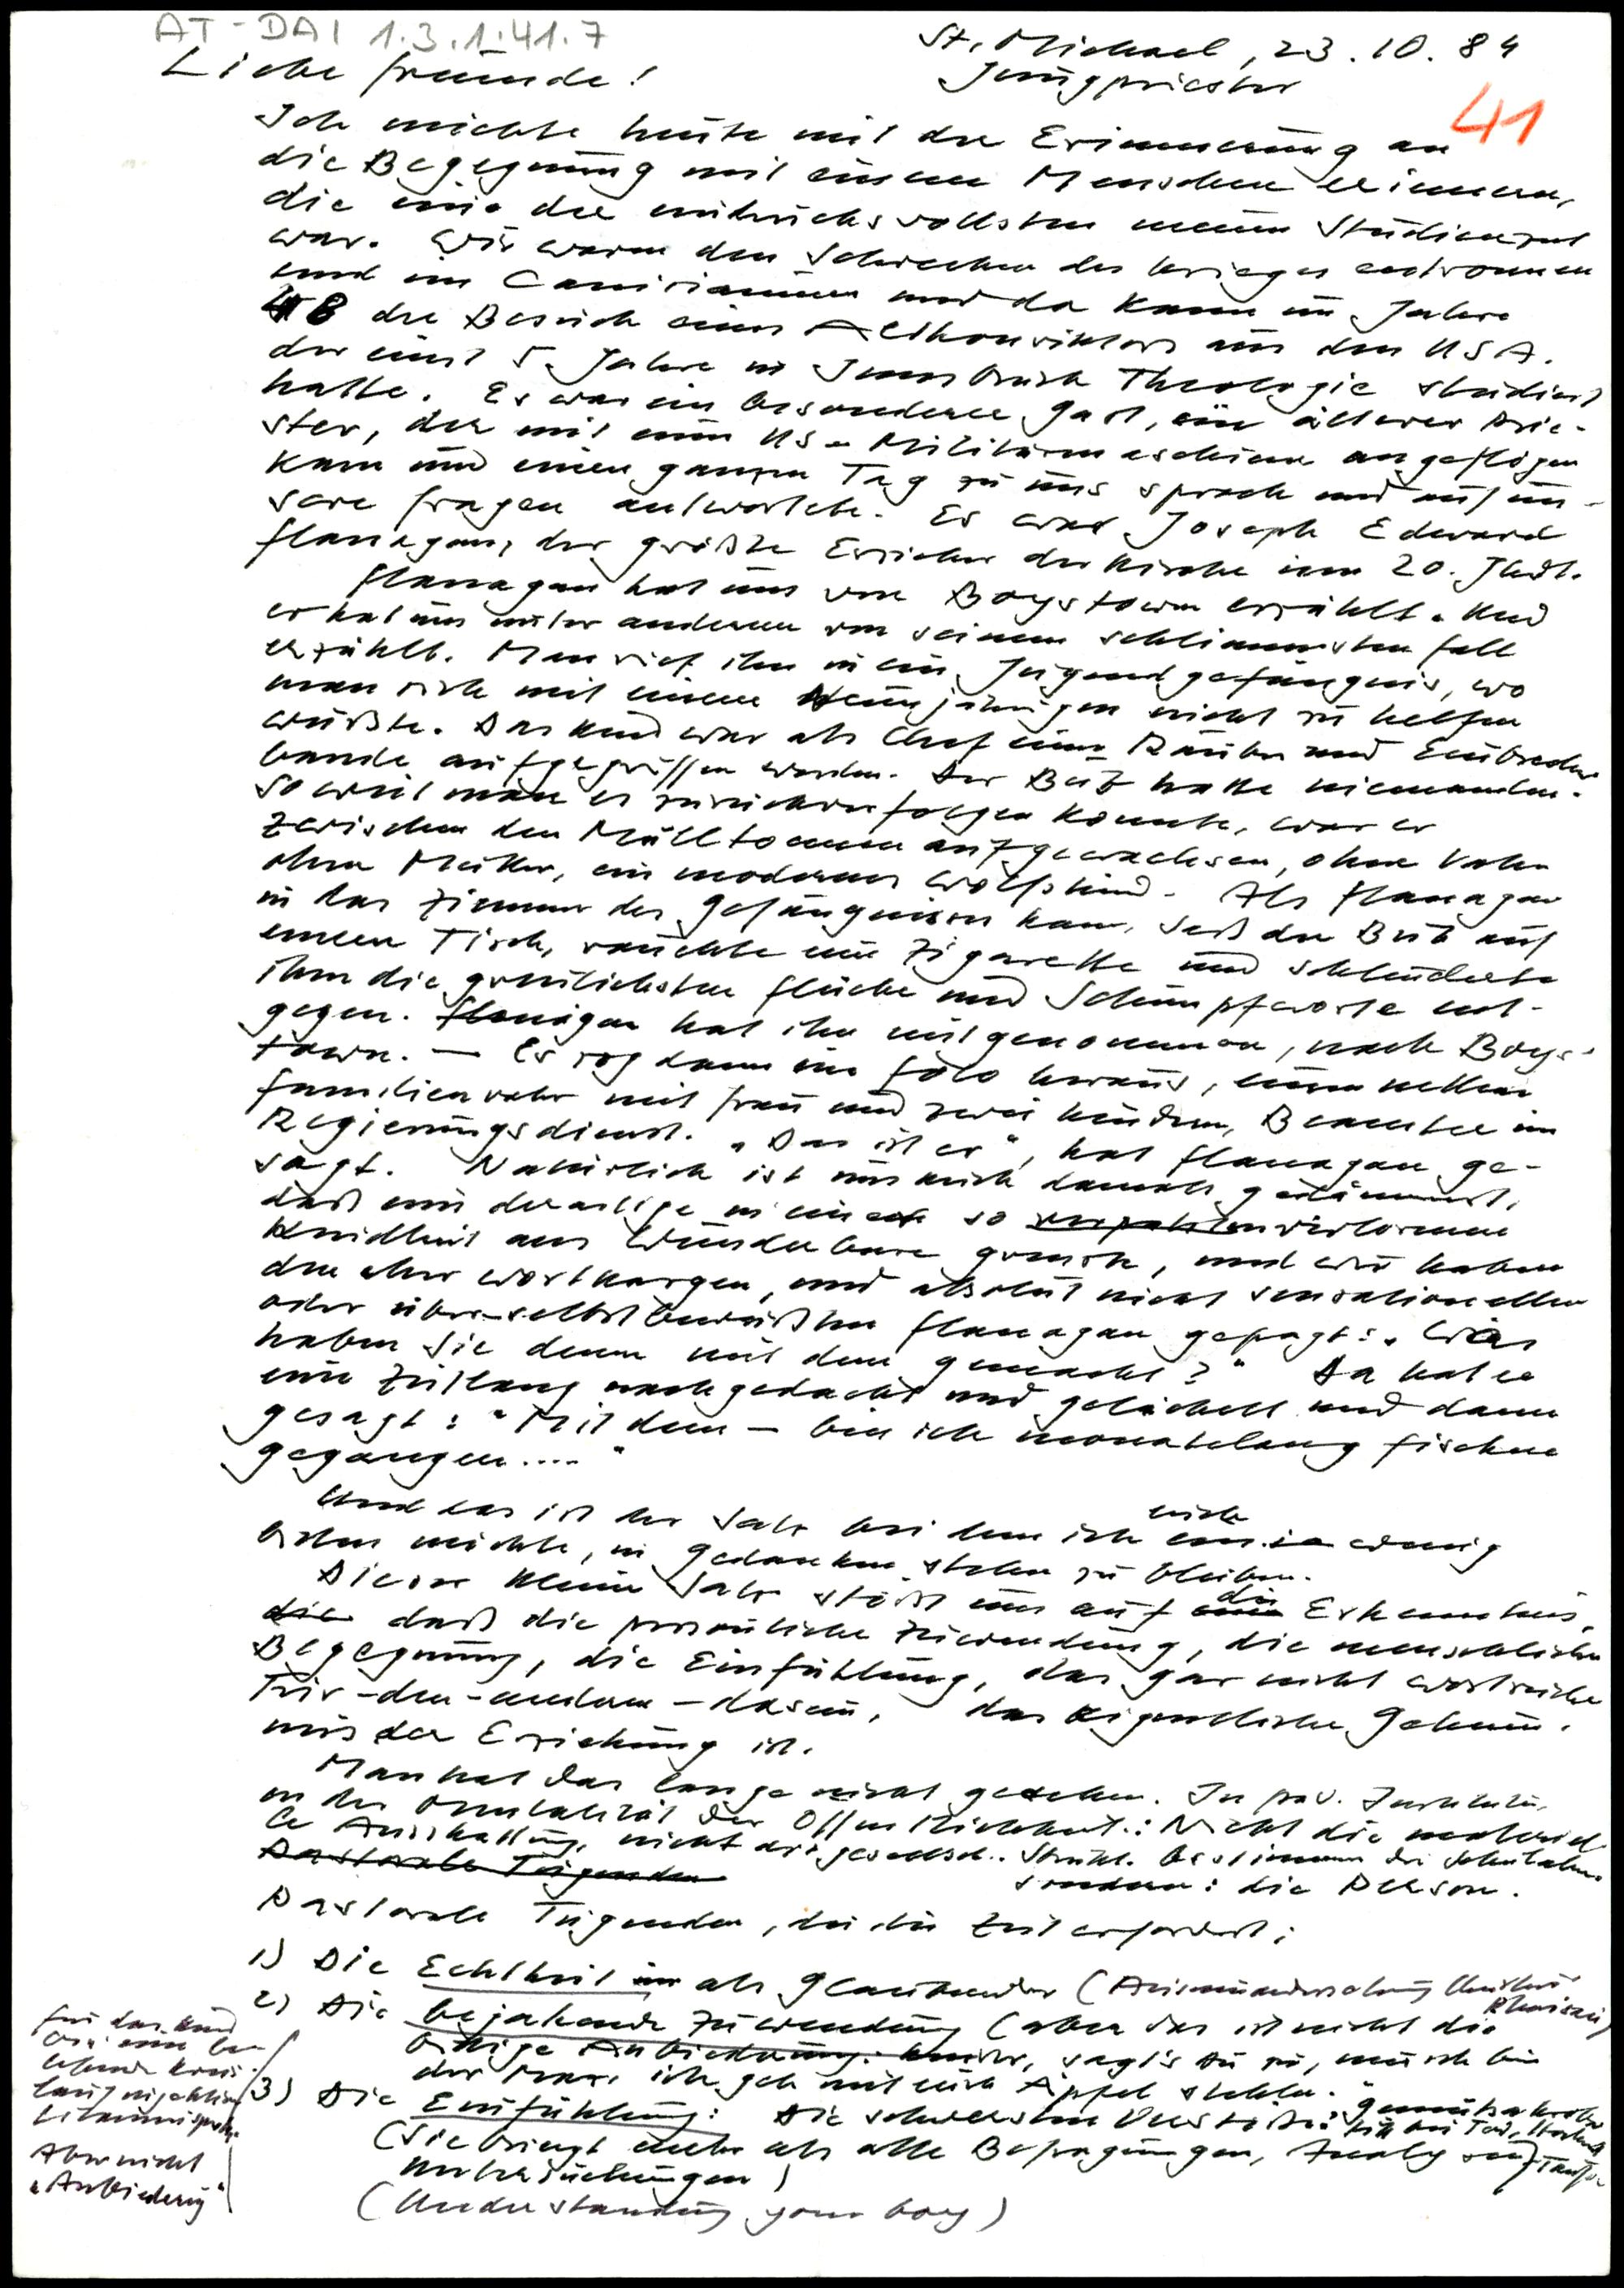 AT-DAI 1.3.1.41.7
St. Michael, 23.10.84
Liebe Freunde!
Jungpriester
41
Ich möchte heute mit der Erinnerung an
die Begegnung mit einem Menschen erinnern,
die eine der eindrucksvollsten meiner Studienzeit
war. Wir waren den Schrecken des Krieges entronnen
und im Canisianum und da kam im Jahre
48 der Besuch eines Altkonviktors aus den USA.
der einst 5 Jahre in Innsbruck Theologie studiert
hatte. Es war ein besonderer Gast, ein älterer Prie-
ster, der mit einer US-Militärmaschine angeflogen
kam und einen ganzen Tag zu uns sprach und auf un-
sere Fragen antwortete. Es war Joseph Edward
Flanagan, der größte Erzieher der Kirche im 20. Jhdt.
Flanagan hat uns von Boystown erzählt. Und
er hat uns unter anderem von seinem schlimmsten Fall
erzählt. Man rief ihn in ein Jugendgefängnis, wo
man sich mit einem Neunjährigen nicht zu helfen
wußte. Das Kind war als Chef einer Räuber und Einbrecher-
bande aufgegriffen worden. Der Bub hatte niemanden.
Soweit man es zurückverfolgen konnte, war er
zwischen den Mülltonnen aufgewachsen, ohne Vater
ohne Mutter, ein modernes Wolfskind. Als Flanagan
in das Zimmer des Gefängnisses kam, saß der Bub auf
einem Tisch, rauchte eine Zigarette und schleuderte
ihm die greulichsten Flüche und Schimpfworte ent-
gegen. Flanagan hat ihn mitgenommen, nach Boys-
town. — Er zog dann ein Foto heraus, einen netten
Familienvater mit Frau und zwei Kindern, Beamter im
Regierungsdienst. „Das ist er“, hat Flanagan ge-
sagt. Natürlich ist uns auch damals gedämmert,
daß eine derartige in eine so verlorene
Kindheit ans Wunderbare grenzte, und wir haben
den eher wortkargen, und absolut nicht sensationellen
oder über-selbstbewußten Flanagan gefragt: „Was
haben Sie denn mit dem gemacht?“ Da hat er
eine Zeitlang nachgedacht und gelächelt und dann
gesagt: „Mit dem — bin ich monatelang fischen
gegangen....“
Und das ist der Satz bei dem ich euch ein wenig
bitten möchte, in Gedanken stehen zu bleiben.
Dieser kleine Satz stößt uns auf die Erkenntnis,
daß die persönliche Zuwendung, die menschliche
Begegnung, die Einfühlung, das gar nicht wortreiche
Für-den-andern-dasein, das eigentliche Geheim-
nis der Erziehung ist.
Man hat das lange nicht gesehen. In päd. Instituten,
in der Mentalität der Öffentlichkeit: Nicht die materiel-
le Ausstattung, nicht die gesellsch. Strukt. bestimmen
Pastorale Tugenden
sondern: die Person.
Pastorale Tugenden, die die Zeit erfordert:
1) Die Echtheit als Glaubender (Auseinandersetzung
2) Die bejahende Zuwendung (aber das ist nicht die
billige Anbiederung: Kinder, sagt's Du zu, mir ich bin
der Maxi, ich geh mit euch Äpfel stehlen.“
3) Die Einfühlung: Die schwersten Verstöße:
(Sie bringt mehr als alle Befragungen,
Untersuchungen)
(Understanding your boy)
für das Kind
Aber nicht
„Anbiederung“